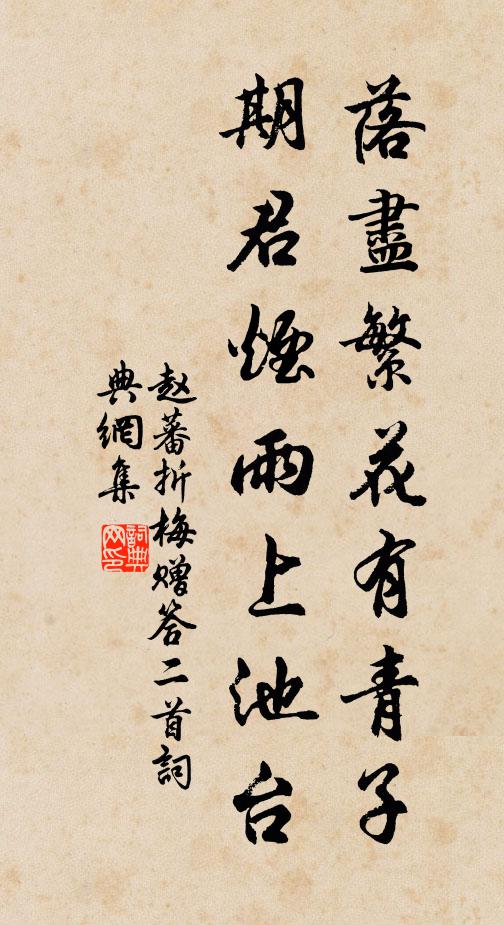 落盡繁花有青子
期君煙雨上池台
赵蕃折梅赠答二首詞
典網集
詞典网印